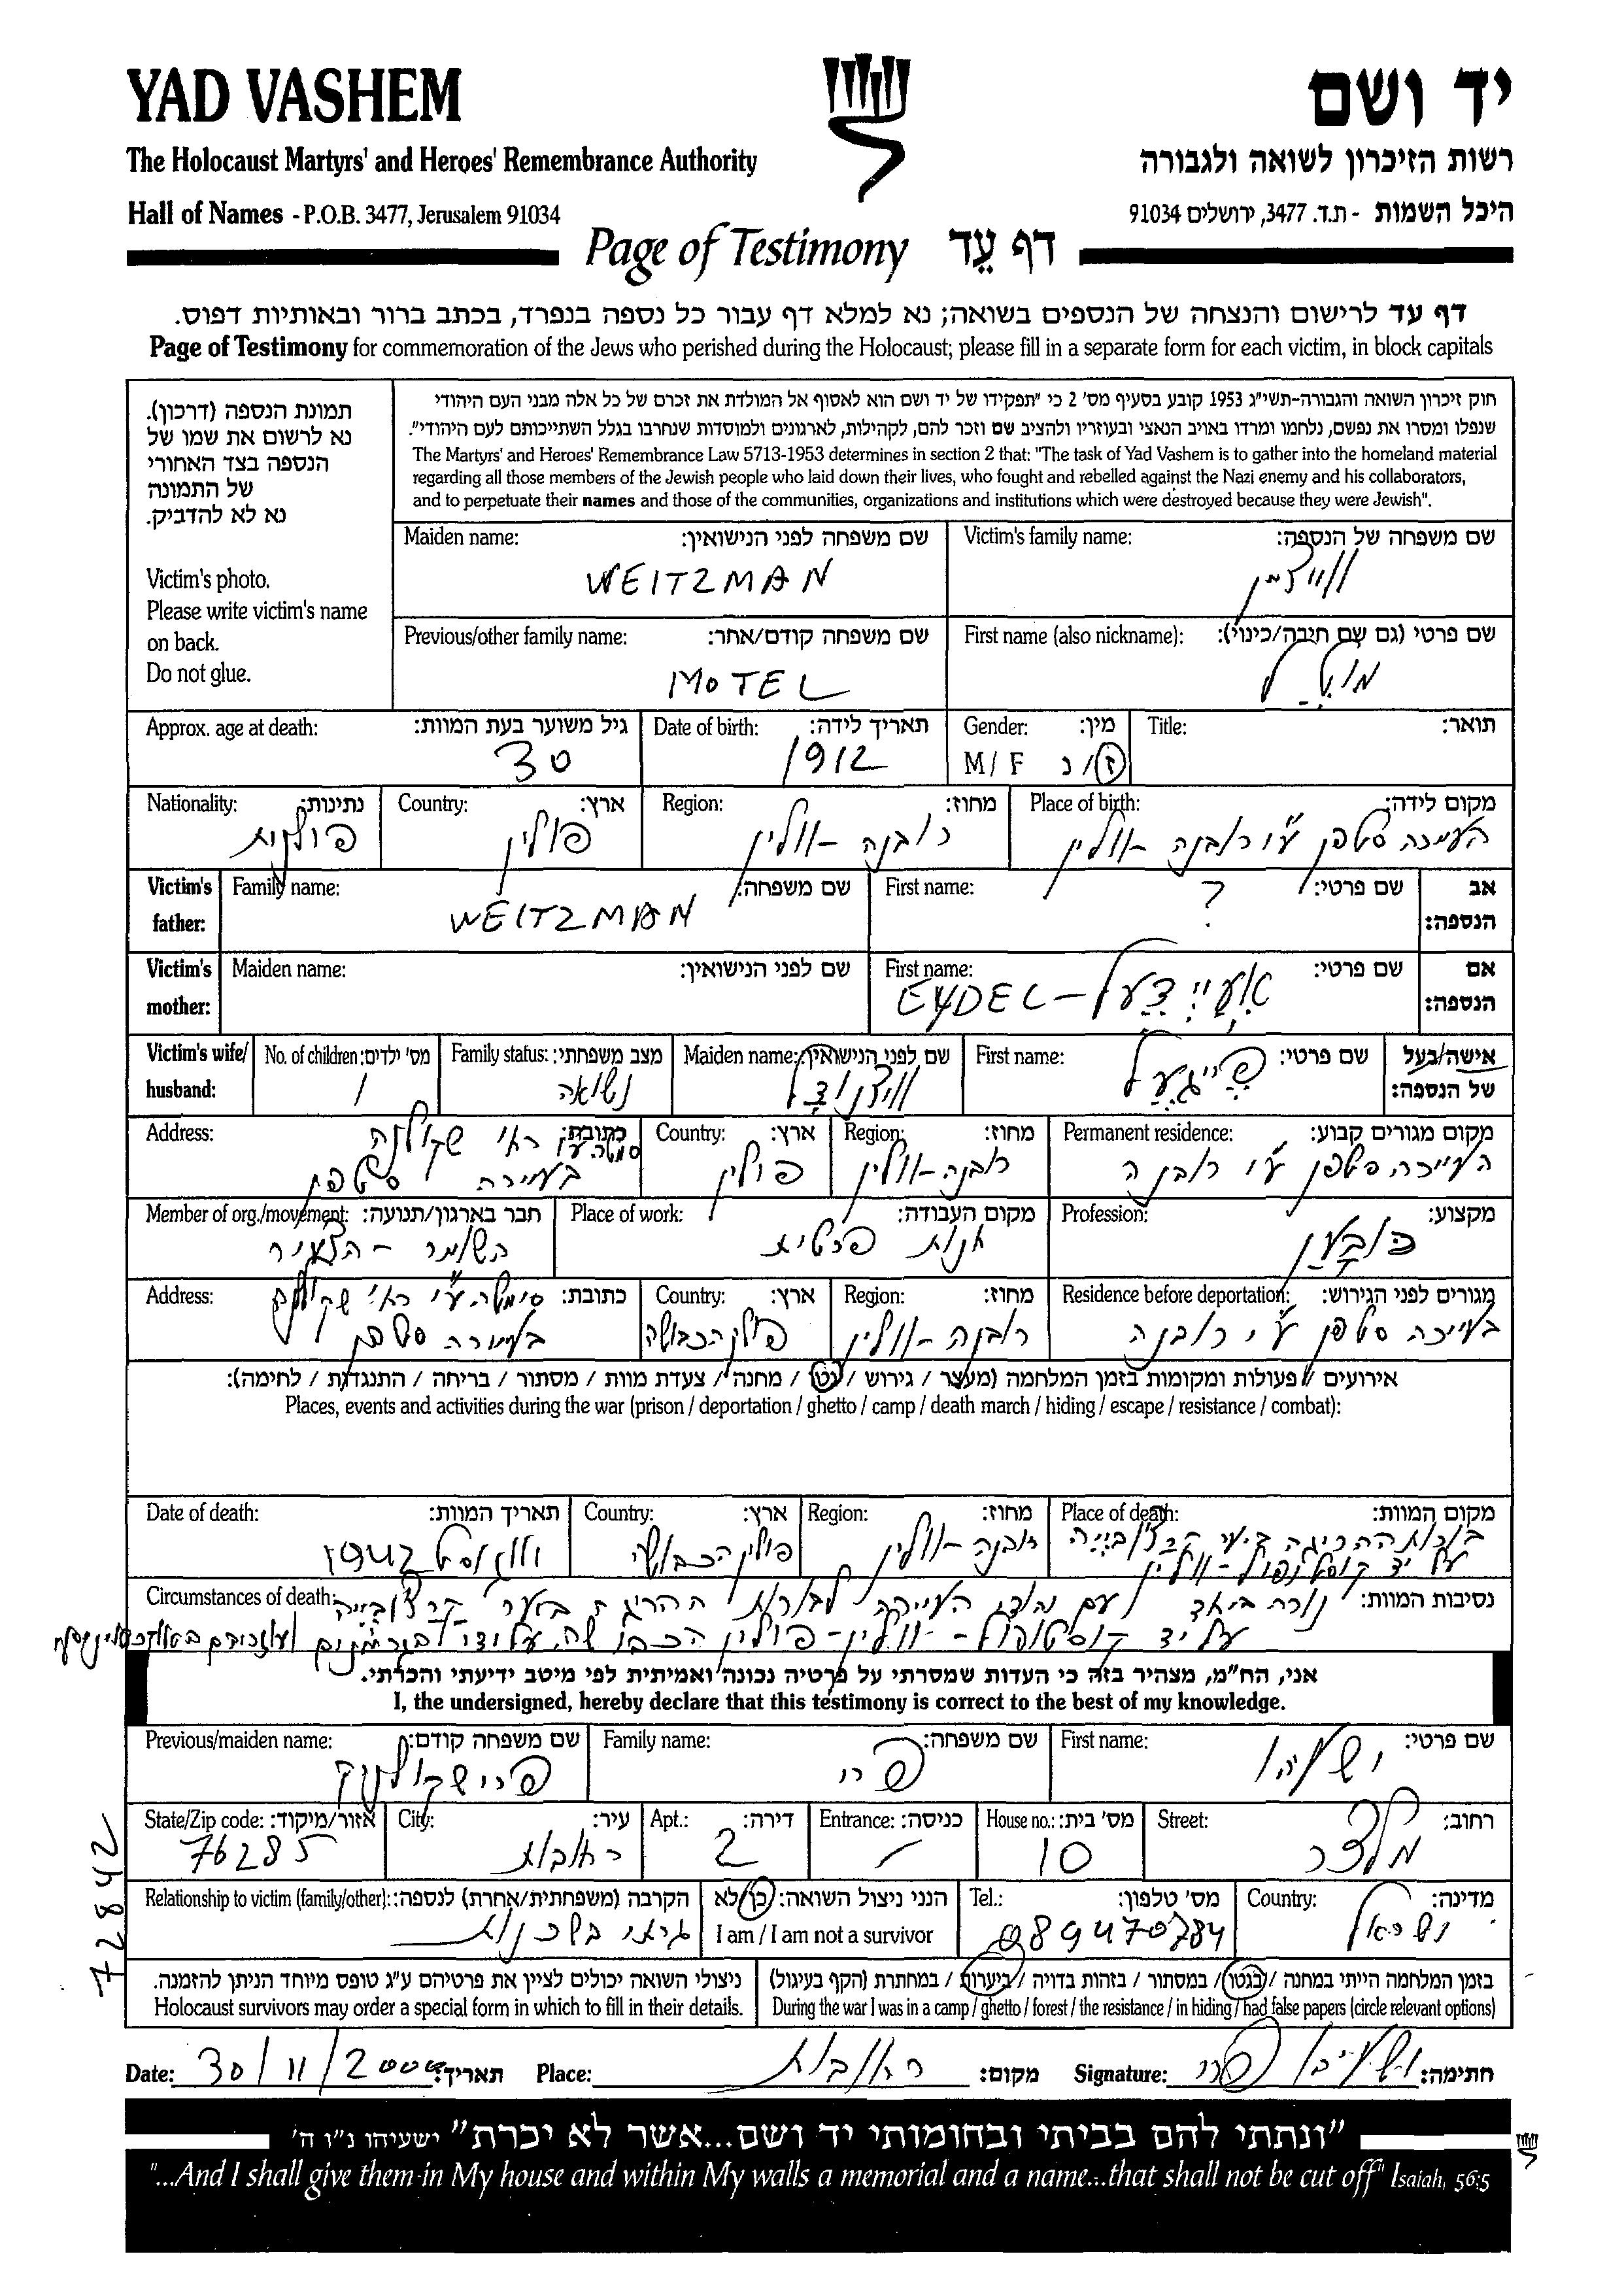 YAD VASHEM
יד ושם
The Holocaust Martyrs' and Heroes' Remembrance Authority
רשות הזיכרון לשואה ולגבורה
Hall of Names - P.O.B. 3477, Jerusalem 91034
היכל השמות - ת.ד. 3477, ירושלים 91034
Page of Testimony דף עֵד
דף עד לרישום והנצחה של הנספים בשואה; נא למלא דף עבור כל נספה בנפרד, בכתב ברור ובאותיות דפוס.
Page of Testimony for commemoration of the Jews who perished during the Holocaust; please fill in a separate form for each victim, in block capitals
תמונת הנספה (דרכון).
נא לרשום את שמו של
הנספה בצד האחורי
של התמונה
נא לא להדביק.
Victim's photo.
Please write victim's name
on back.
Do not glue.
חוק זיכרון השואה והגבורה-תשי"ג 1953 קובע בסעיף מס' 2 כי "תפקידו של יד ושם הוא לאסוף אל המולדת את זכרם של כל אלה מבני העם היהודי
שנפלו ומסרו את נפשם, נלחמו ומרדו באויב הנאצי ובעוזריו ולהציב שם וזכר להם, לקהילות, לארגונים ולמוסדות שנחרבו בגלל השתייכותם לעם היהודי".
The Martyrs' and Heroes' Remembrance Law 5713-1953 determines in section 2 that: "The task of Yad Vashem is to gather into the homeland material
regarding all those members of the Jewish people who laid down their lives, who fought and rebelled against the Nazi enemy and his collaborators,
and to perpetuate their names and those of the communities, organizations and institutions which were destroyed because they were Jewish".
Maiden name: שם משפחה לפני הנישואין: Victim's family name: שם משפחה של הנספה:
WEITZMAN ווייצמן
Previous/other family name: שם משפחה קודם/אחר: First name (also nickname): שם פרטי (גם שם חיבה/כינוי):
MOTEL מוטל
Approx. age at death: גיל משוער בעת המוות: Date of birth: תאריך לידה: Gender: מין: Title: תואר:
30 1912 M / F ז / נ
Nationality: נתינות: Country: ארץ: Region: מחוז: Place of birth: מקום לידה:
פולנית פולין רובנה - וולין העיירה סטפן ע"י רובנה - וולין
Victim's father: Family name: שם משפחה: First name: שם פרטי: אב הנספה:
WEITZMAN ?
Victim's mother: Maiden name: שם לפני הנישואין: First name: שם פרטי: אם הנספה:
EYDEL - איידעל
Victim's wife/ husband: No. of children: מס' ילדים: Family status: מצב משפחתי: Maiden name: שם לפני הנישואין: First name: שם פרטי: אישה/בעל של הנספה:
1 נשואה פייגעל
Address: כתובת: Country: ארץ: Region: מחוז: Permanent residence: מקום מגורים קבוע:
בעיירה סטפן פולין רובנה - וולין העיירה סטפן ע"י רובנה
Member of org./movement: חבר בארגון/תנועה: Place of work: מקום העבודה: Profession: מקצוע:
השומר - הצעיר חנות פרטית כובען
Address: כתובת: Country: ארץ: Region: מחוז: Residence before deportation: מגורים לפני הגירוש:
בעיירה סטפן פולין הכבושה רובנה - וולין בעיירה סטפן ע"י רובנה
אירועים / פעולות ומקומות בזמן המלחמה (מעצר / גירוש / גטו / מחנה / צעדת מוות / מסתור / בריחה / התנגדות / לחימה):
Places, events and activities during the war (prison / deportation / ghetto / camp / death march / hiding / escape / resistance / combat):
Date of death: תאריך המוות: Country: ארץ: Region: מחוז: Place of death: מקום המוות:
אוגוסט 1942 פולין הכבושה רובנה - וולין בורות ההריגה ביער
על יד קוסטופול - וולין
Circumstances of death: נסיבות המוות:
נורה ביחד עם יהודי העיירה לבורות ההריגה ביער
על יד קוסטופול - וולין - פולין הכבושה על ידי הגרמנים
אני, הח"מ, מצהיר בזה כי העדות שמסרתי על פרטיה נכונה ואמיתית לפי מיטב ידיעתי והכרתי.
I, the undersigned, hereby declare that this testimony is correct to the best of my knowledge.
Previous/maiden name: שם משפחה קודם: Family name: שם משפחה: First name: שם פרטי:
פרישקולניק פרי ישעיהו
State/Zip code: אזור/מיקוד: City: עיר: Apt.: דירה: Entrance: כניסה: House no.: מס' בית: Street: רחוב:
76285 רחובות 2 10 מלצר
Relationship to victim (family/other): הקרבה (משפחתית/אחרת) לנספה: הנני ניצול השואה: כן/לא Tel.: מס' טלפון: Country: מדינה:
I am / I am not a survivor 089470784 ישראל
72842
ניצולי השואה יכולים לציין את פרטיהם ע"ג טופס מיוחד הניתן להזמנה.
Holocaust survivors may order a special form in which to fill in their details.
בזמן המלחמה הייתי במחנה / בגטו / במסתור / בזהות בדויה / ביערות / במחתרת (הקף בעיגול)
During the war I was in a camp / ghetto / forest / the resistance / in hiding / had false papers (circle relevant options)
Date: 30/11/2000 תאריך: Place: רחובות מקום: Signature: ישעיהו פרי חתימה:
"ונתתי להם בביתי ובחומותי יד ושם...אשר לא יכרת" ישעיהו נ"ו ה'
"...And I shall give them in My house and within My walls a memorial and a name...that shall not be cut off" Isaiah, 56:5